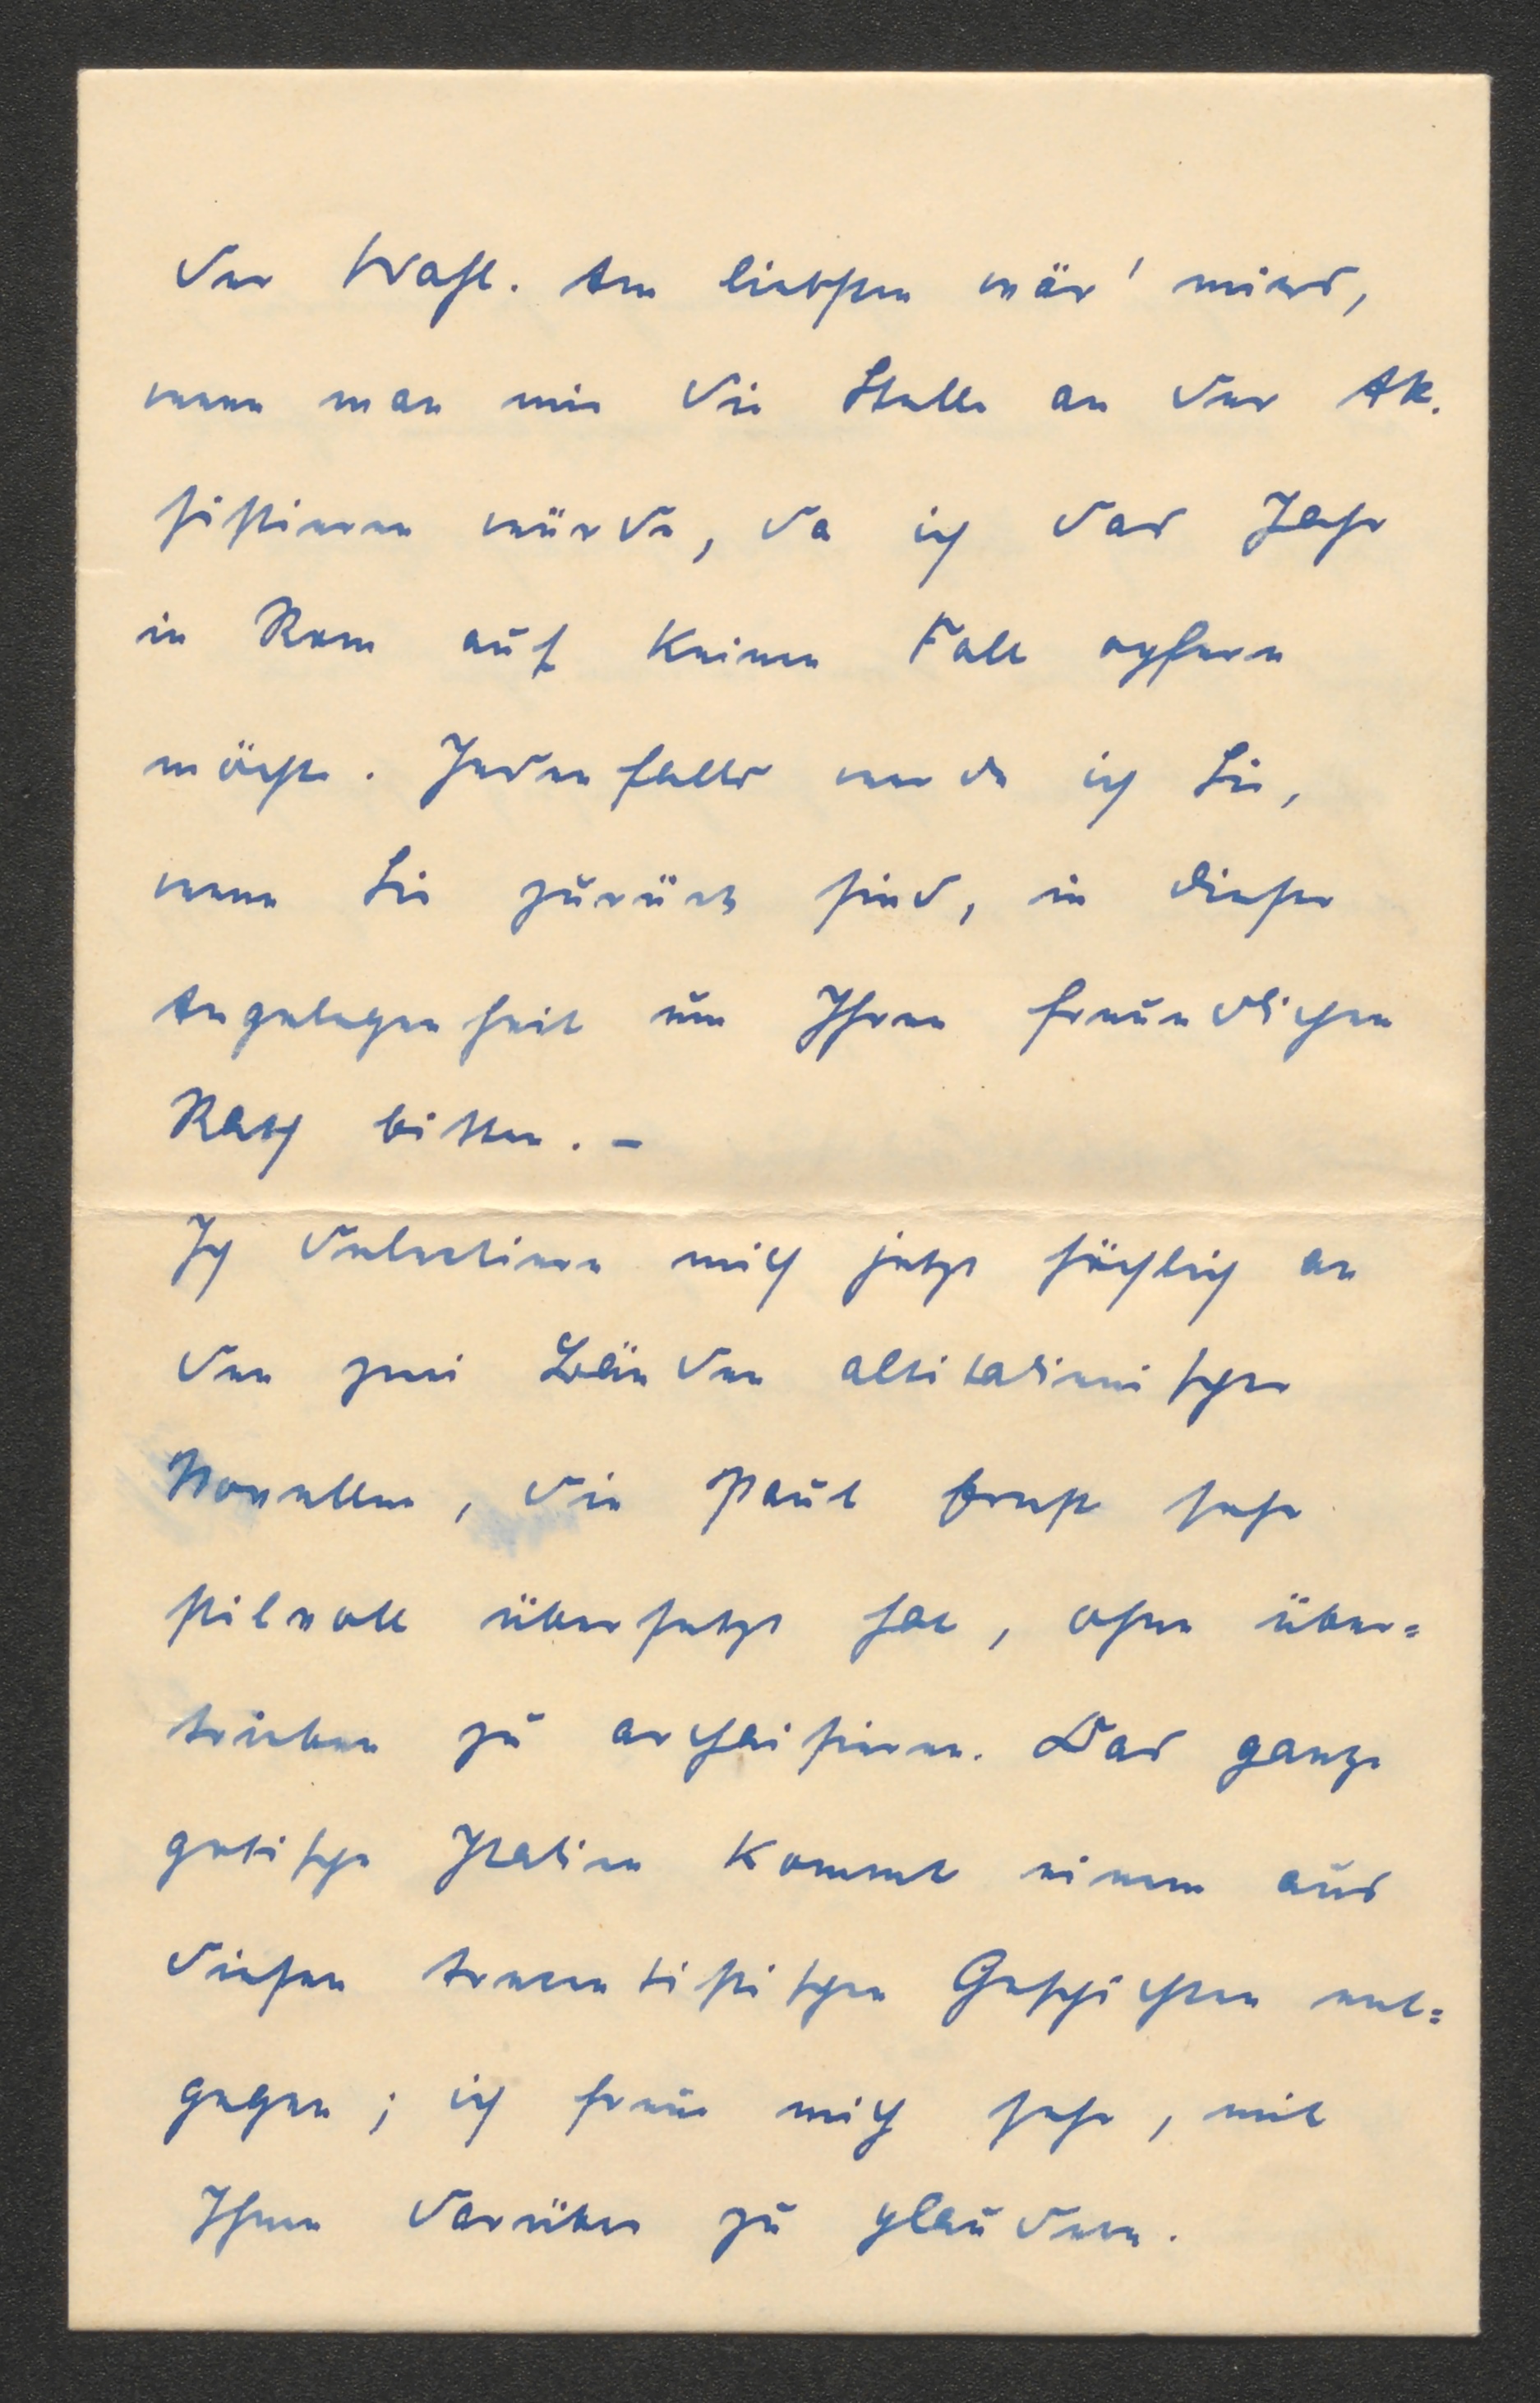 der Wahl. Am liebsten wär' mirs,
wenn man mir die Stelle an der Ak.
sistieren würde, da ich das Jahr
in Rom auf keinen Fall opfern
möchte. Jedenfalls werde ich Sie,
wenn Sie zurück sind, in dieser
Angelegenheit um Ihren freundlichen
Rath bitten. –
Ich delectiere mich jetzt höchlich an
den zwei Bänden altitalienischer
Novellen, die Paul Ernst sehr
stilvoll übersetzt hat, ohne über=
trieben zu archaisieren. Das ganze
gotische Italien kommt einem aus
diesen trecentistischen Geschichten ent=
gegen; ich freue mich sehr, mit
Ihnen darüber zu plaudern.